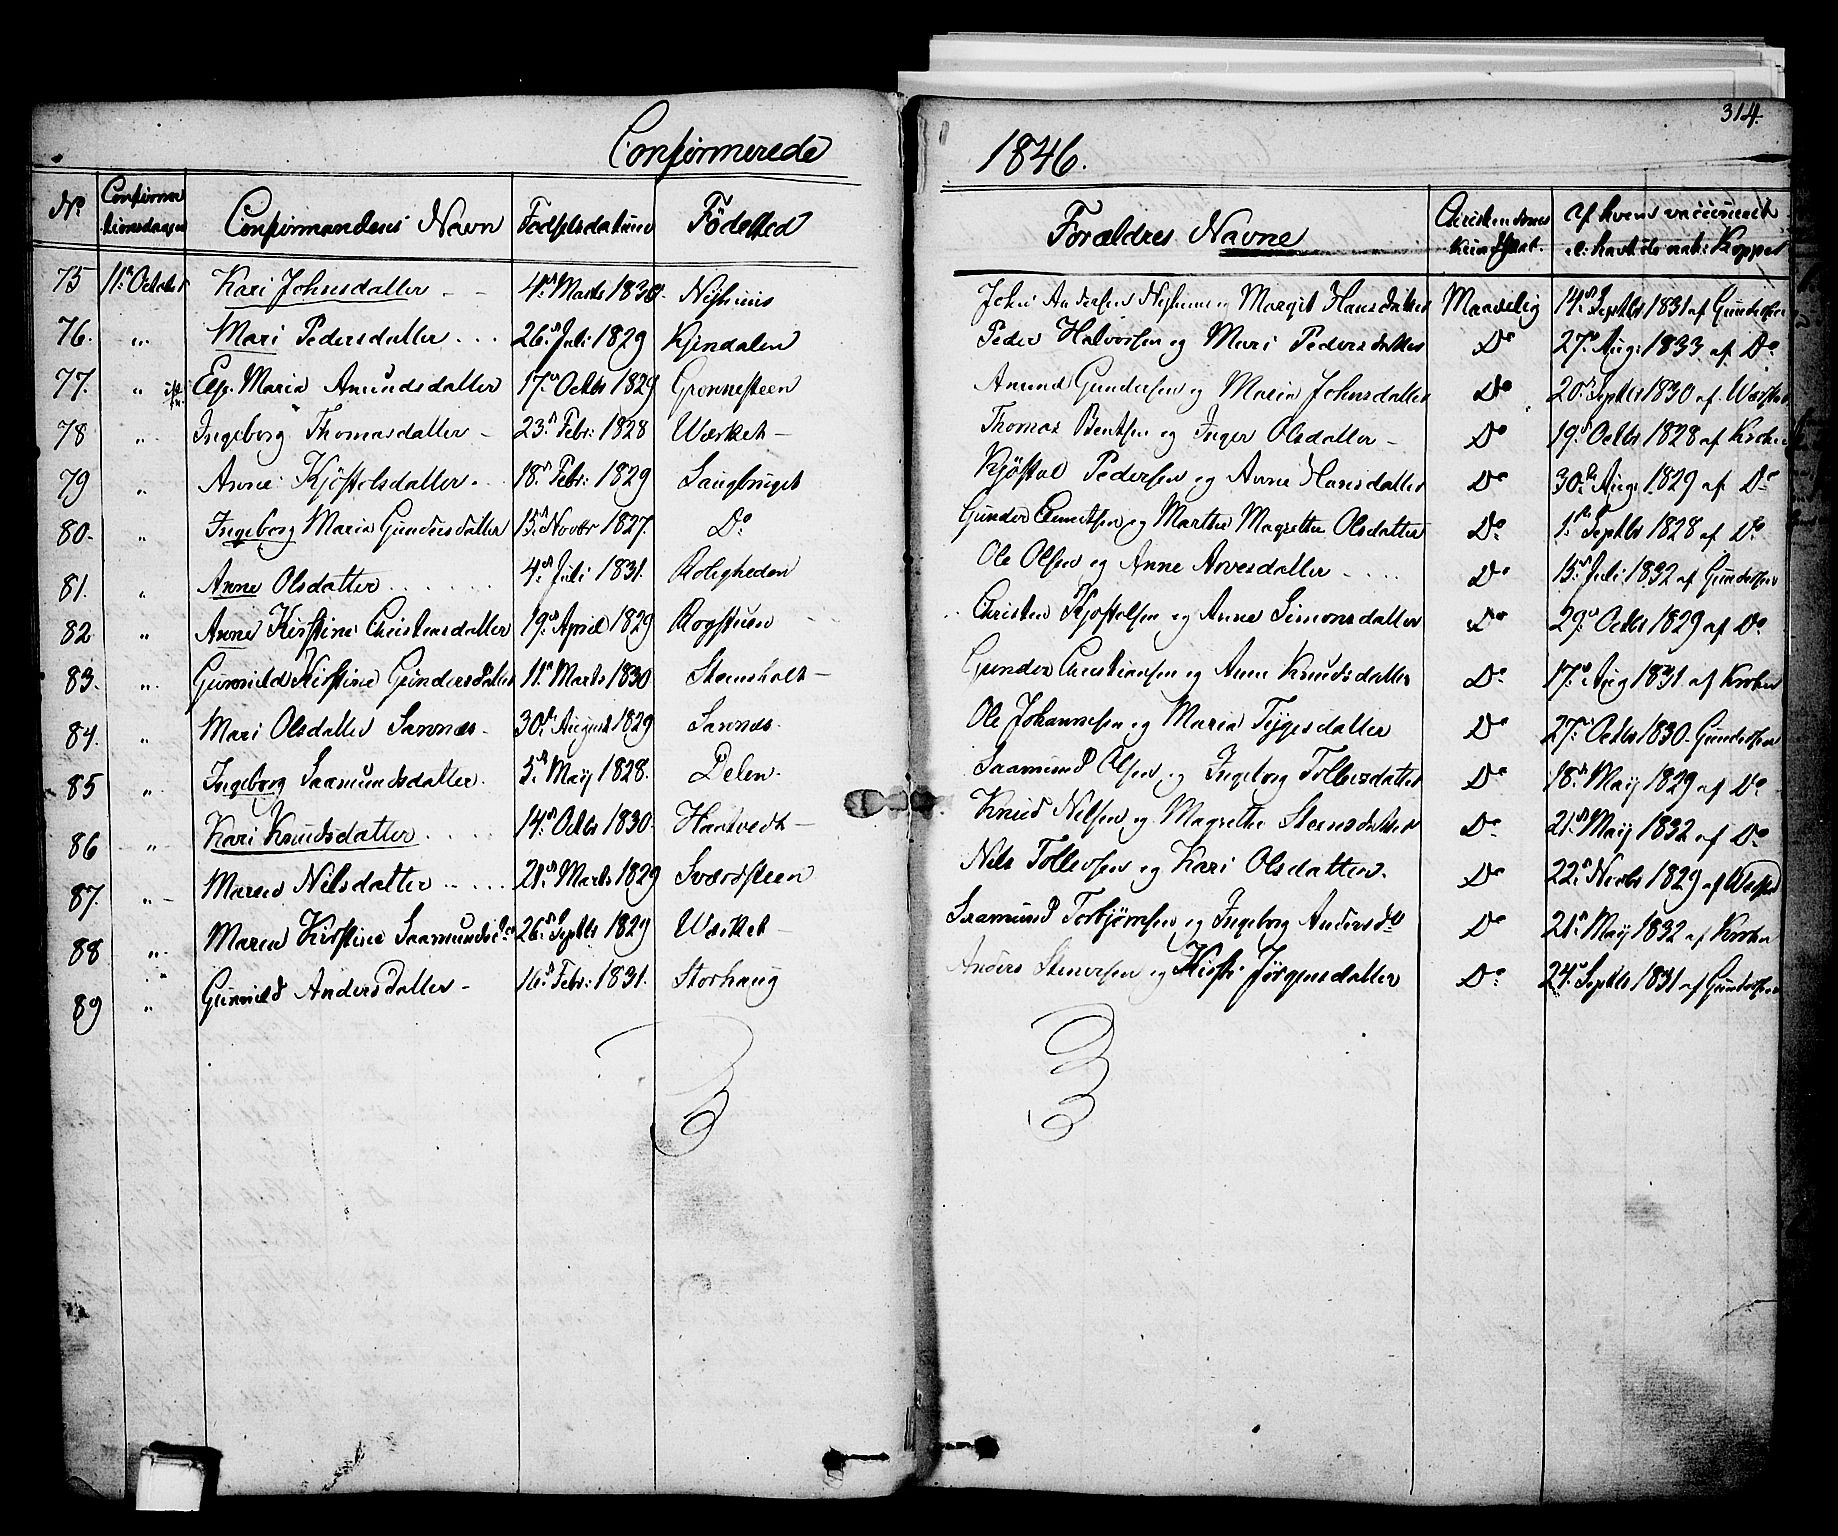 314.
Confirmerede 1846.
No Confirmationsdagen Confirmandens Navn Fødselsdatum Fødested Forældres Navne Christendoms Kundskab. Af hvem vaccineret el: havt de nat: Kopper
75 11te October Kari Johnsdatter - - 4de Marts 1830. Nyhuus John Andersen Nyhuus og Margit Hansdatter Maadelig 14de Septbr 1831 af Gundersen
76. " Mari Pedersdatter ... 26de Juli 1829 Kjendalen Peder Halvorsen og Mari Pedersdatter Do 27de Aug: 1833 af Do
77. " Else Maria Amundsdatter 17de Octbr 1829 Grønnesteen Amund Gundersen og Maria Johnsdatter Do 20de Septbr 1830 af
78 " Ingeborg Thomasdatter - 23de Febr: 1828 Værket - Thomas Bentsen og Inger Olsdatter - Do 19de Octbr 1828 af Krohn
79 " Anne Kjøstolsdatter. 18de Febr: 1829 Saugbruget Kjøstol Pedersen og Anne Hansdatter Do 30te Aug: 1829 af Do
80. " Ingeborg Maria Gundersdatter 15de Novbr 1827. Do Gunder og Marthe Magrethe Olsdatter Do 1ste Septbr 1828 af Do
81. " Anne Olsdatter ..... 4de Juli 1831. Roligheden Ole Olsen og Anne Arvesdatter .... Do 15de Juli 1832 af Gundersen
82 " Anne Kirstine Christensdatter 19de April 1829 Rogstuen Christen Kjøstolsen og Anne Simonsdatter Do 29de Octbr 1829 af Do
83. " Gunnild Kirstine Gundersdatter 11te Marts 1830 Steensholt - Gunder Christiansen og Anne Knudsdatter Do 17de Aug 1831 af Krohn
84. " Mari Olsdatter Sannæs. 30te August 1829 Sannæs. Ole Johannesen og Maria Tygesdatter Do 27de Octbr 1830. Gundersen
85 " Ingeborg Saamundsdatter. 5te Maij 1828. Delen. Saamund Olsen og Ingeborg Tollevsdatter Do 18de Maij 1829 af Do
86 " Kari Knudsdatter ..... 14de Octbr 1830. Haatvedt - Knud Nilsen og Magrethe Steensdatter Do 21de Maij 1832 af Do
87. " Maren Nilsdatter ..... 21de Marts 1829 Sværdsteen Nils Tollevsen og Kari Olsdatter. Do 22de Novbr 1829 af
88 " Maren Kirstine Saamundsdtr 26de Septbr 1829 Værket - Saamund Torbjørnsen og Ingeborg Andersdtr Do 21de Maij 1832 af Krohn
89 " Gunnild Andersdatter - 16de Febr: 1831. Storhaug Anders Steversen og Kirsti Jørgensdatter Do 24de Septbr 1831 af Gundersen